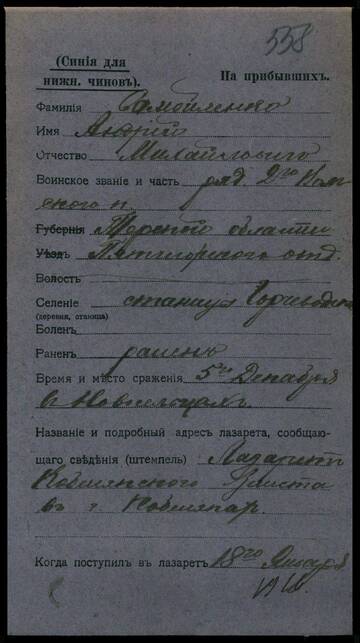 558
(Синія для
нижн. чиновъ).
На прибывшихъ.
Фамилія Самойленко
Имя Андрій
Отчество Михайловичъ
Воинское званіе и часть ряд. 2го
ского п.
Губернія Терской области
Уѣздъ Пятигорского отд.
Волость
Селеніе станица
(деревня, станица)
Боленъ
Раненъ раненъ
Время и мѣсто сраженія 5го Декабря
в
Названіе и подробный адресъ лазарета, сообщаю-
щаго свѣдѣнія (штемпель) Лазаретъ
въ г.
Когда поступилъ въ лазаретъ 18го Января